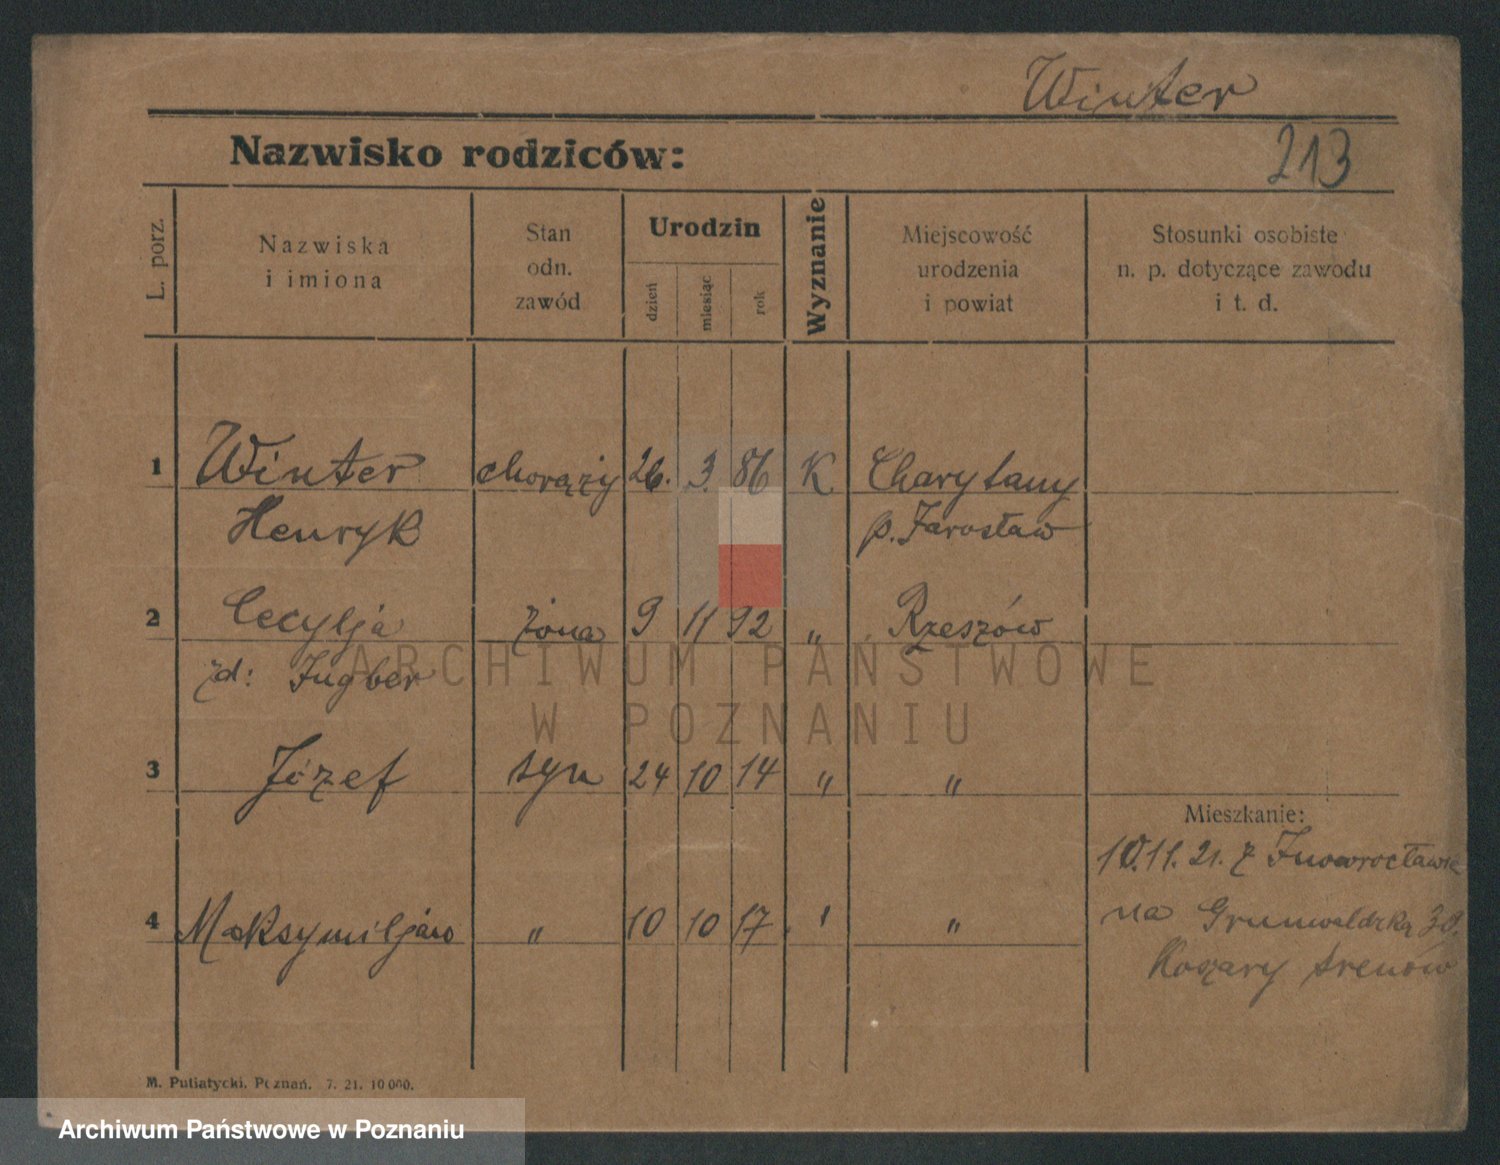 Winter
213
Nazwisko rodziców:
L. porz.
Nazwiska
i imiona
Stan
odn.
zawód
Urodzin
dzień
miesiąc
rok
Wyznanie
Miejscowość
urodzenia
i powiat
Stosunki osobiste
n. p. dotyczące zawodu
i t. d.
1 Winter chorąży 26. 3. 86 K Charytany
Henryk p. Jarosław
2 Cecylja żona 9 11 92 „ Rzeszów
zd: Jugber
3 Józef syn 24 10 14 „ „
Mieszkanie:
10.11.21. z Inowrocławia
4 Maksymiljan „ 10 10 17 „ „
na Grunwaldzką 30.
Koszary trenów
M. Putiatycki, Poznań. 7. 21. 10 000.
ARCHIWUM PAŃSTWOWE
W POZNANIU
Archiwum Państwowe w Poznaniu